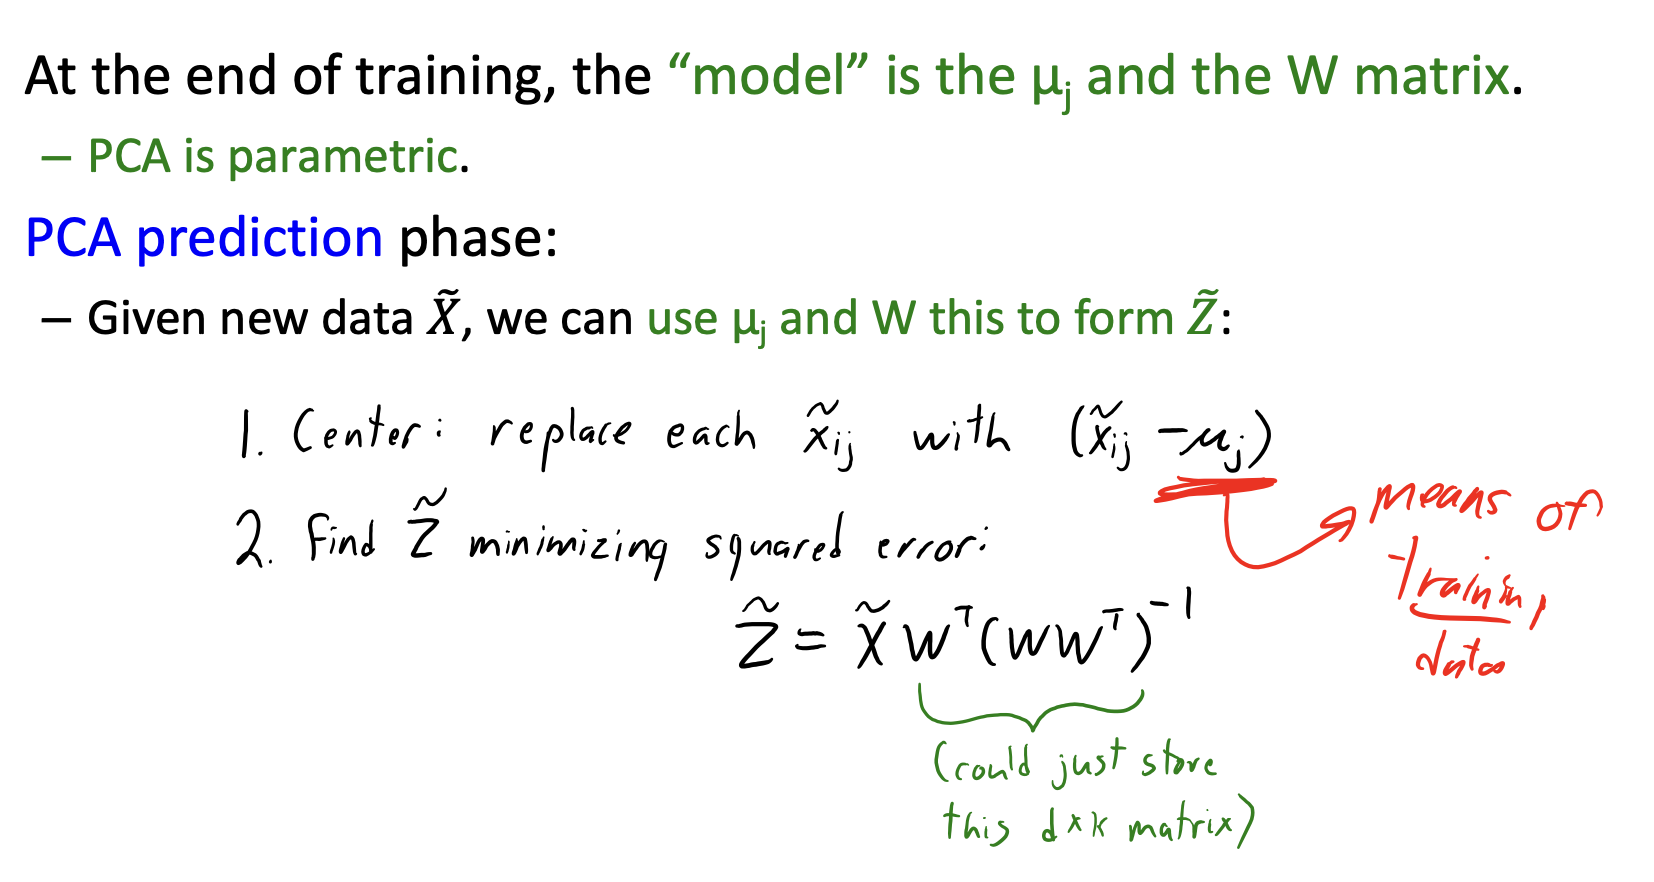 At the end of training, the “model” is the μⱼ and the W matrix.
– PCA is parametric.
PCA prediction phase:
– Given new data X̃, we can use μⱼ and W this to form Z̃:
1. Center: replace each x̃ᵢⱼ with (x̃ᵢⱼ - μⱼ)
2. Find Z̃ minimizing squared error:
Z̃ = X̃Wᵀ(WWᵀ)⁻¹
means of
training
data
(could just store
this d×k matrix)